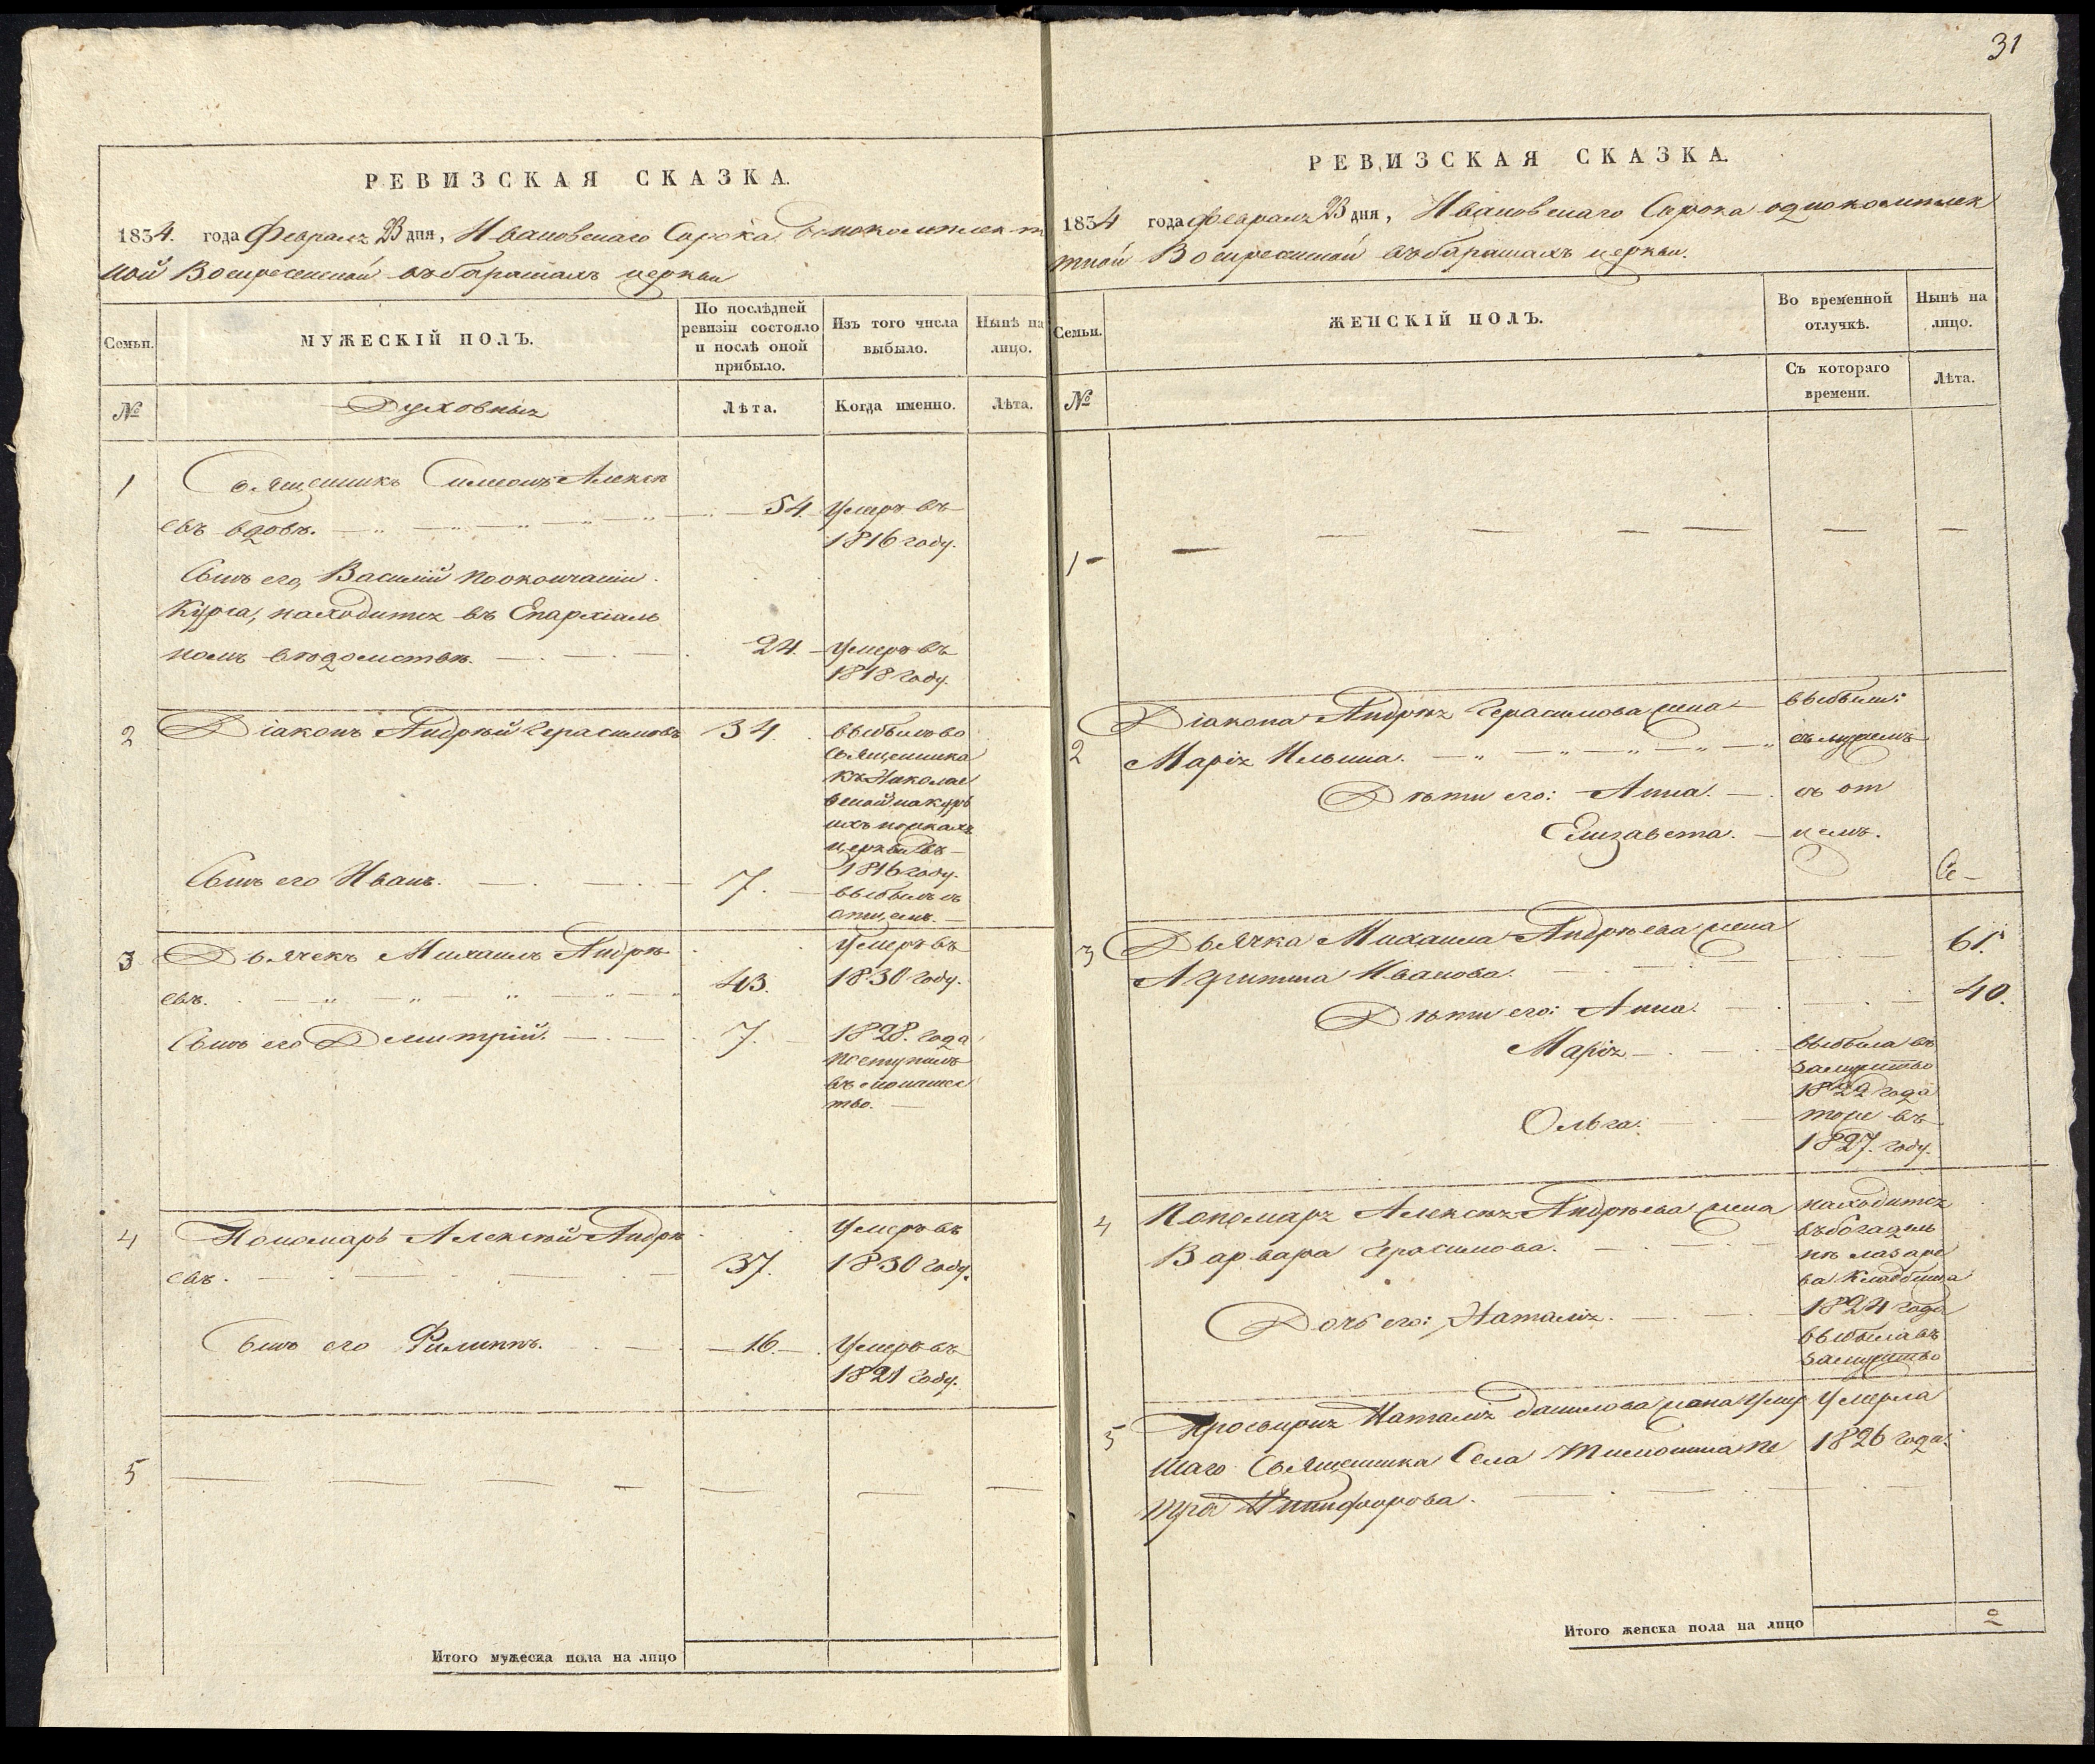 31
РЕВИЗСКАЯ СКАЗКА.
1834. года Февраля 23 дня, Ивановскаго Сорока, однокомплект
ной Воскресенской въ барашахъ церкви
Семьи.
МУЖЕСКІЙ ПОЛЪ.
По послѣдней
ревизіи состояло
и послѣ оной
прибыло.
Изъ того числа
выбыло.
Нынѣ на
лицо.
№
Духовныя
Лѣта.
Когда именно.
Лѣта.
1
Священникъ Симеонъ Алексѣ
евъ вдовъ. 54. Умеръ въ
1816 году.
Сынъ его, Василій по окончаніи
Курса, находится въ Епархіаль
номъ вѣдомствѣ. 24. Умеръ въ
1818 году.
2 Діаконъ Андрѣй Герасимовъ 34. выбылъ во
священника
къ Николаев
ской на курь
ихъ ношкахъ
церкви въ
1816 году.
Сынъ его Иванъ. 7. выбылъ съ
отцемъ.
3 Дьячекъ Михаилъ Андрѣ
евъ. 43. Умеръ въ
1830 году.
Сынъ его Дмитрій. 7. 1828. года
поступилъ
въ монашес
тво.
4 Пономарь Алексѣй Андрѣ
евъ. 37. Умеръ въ
1830 году.
Сынъ его Филиппъ. 16. Умеръ въ
1821 году.
5
Итого мужеска пола на лицо
РЕВИЗСКАЯ СКАЗКА.
1834 года Февраля 23 дня, Ивановскаго Сорока однокомплек
тной Воскресенской въ барашахъ церкви.
Семьи.
ЖЕНСКІЙ ПОЛЪ.
Во временной
отлучкѣ.
Нынѣ на
лицо.
№
Съ котораго
времени.
Лѣта.
1
2 Діакона Андрѣя Герасимова жена выбыли:
Марія Ильина. съ мужемъ
Дѣти его: Анна. съ от
Елизавета. цемъ.
3 Дьячка Михаила Андрѣева жена
Агрипина Иванова. 61.
Дѣти его: Анна. 40.
Марія выбыла въ
замужство
1822 года
Ольга. тоже въ
1827. году.
4 Пономаря Алексѣя Андрѣева жена находится
Варвара Герасимова. въ богадѣль
нѣ лазаре
ва Кладбища
Дочь его: Наталія. 1824 года
выбыла въ
замужство
5 Просвирня Наталія данилова жена умер Умерла
шаго Священника Села Тимошина Пе 1826 года.
тра Никифорова.
Итого женска пола на лицо 2